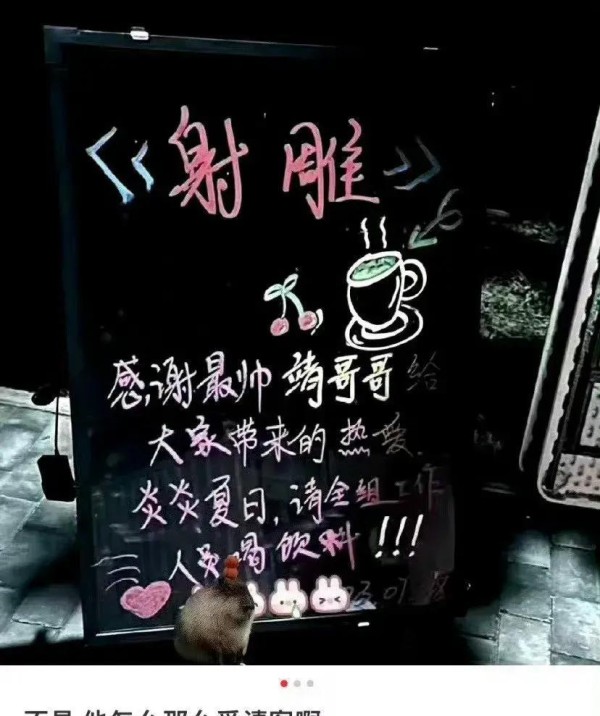 《射雕》
感谢最帅 靖哥哥给
大家带来的热爱
炎炎夏日,请全组工作
人员喝饮料!!!